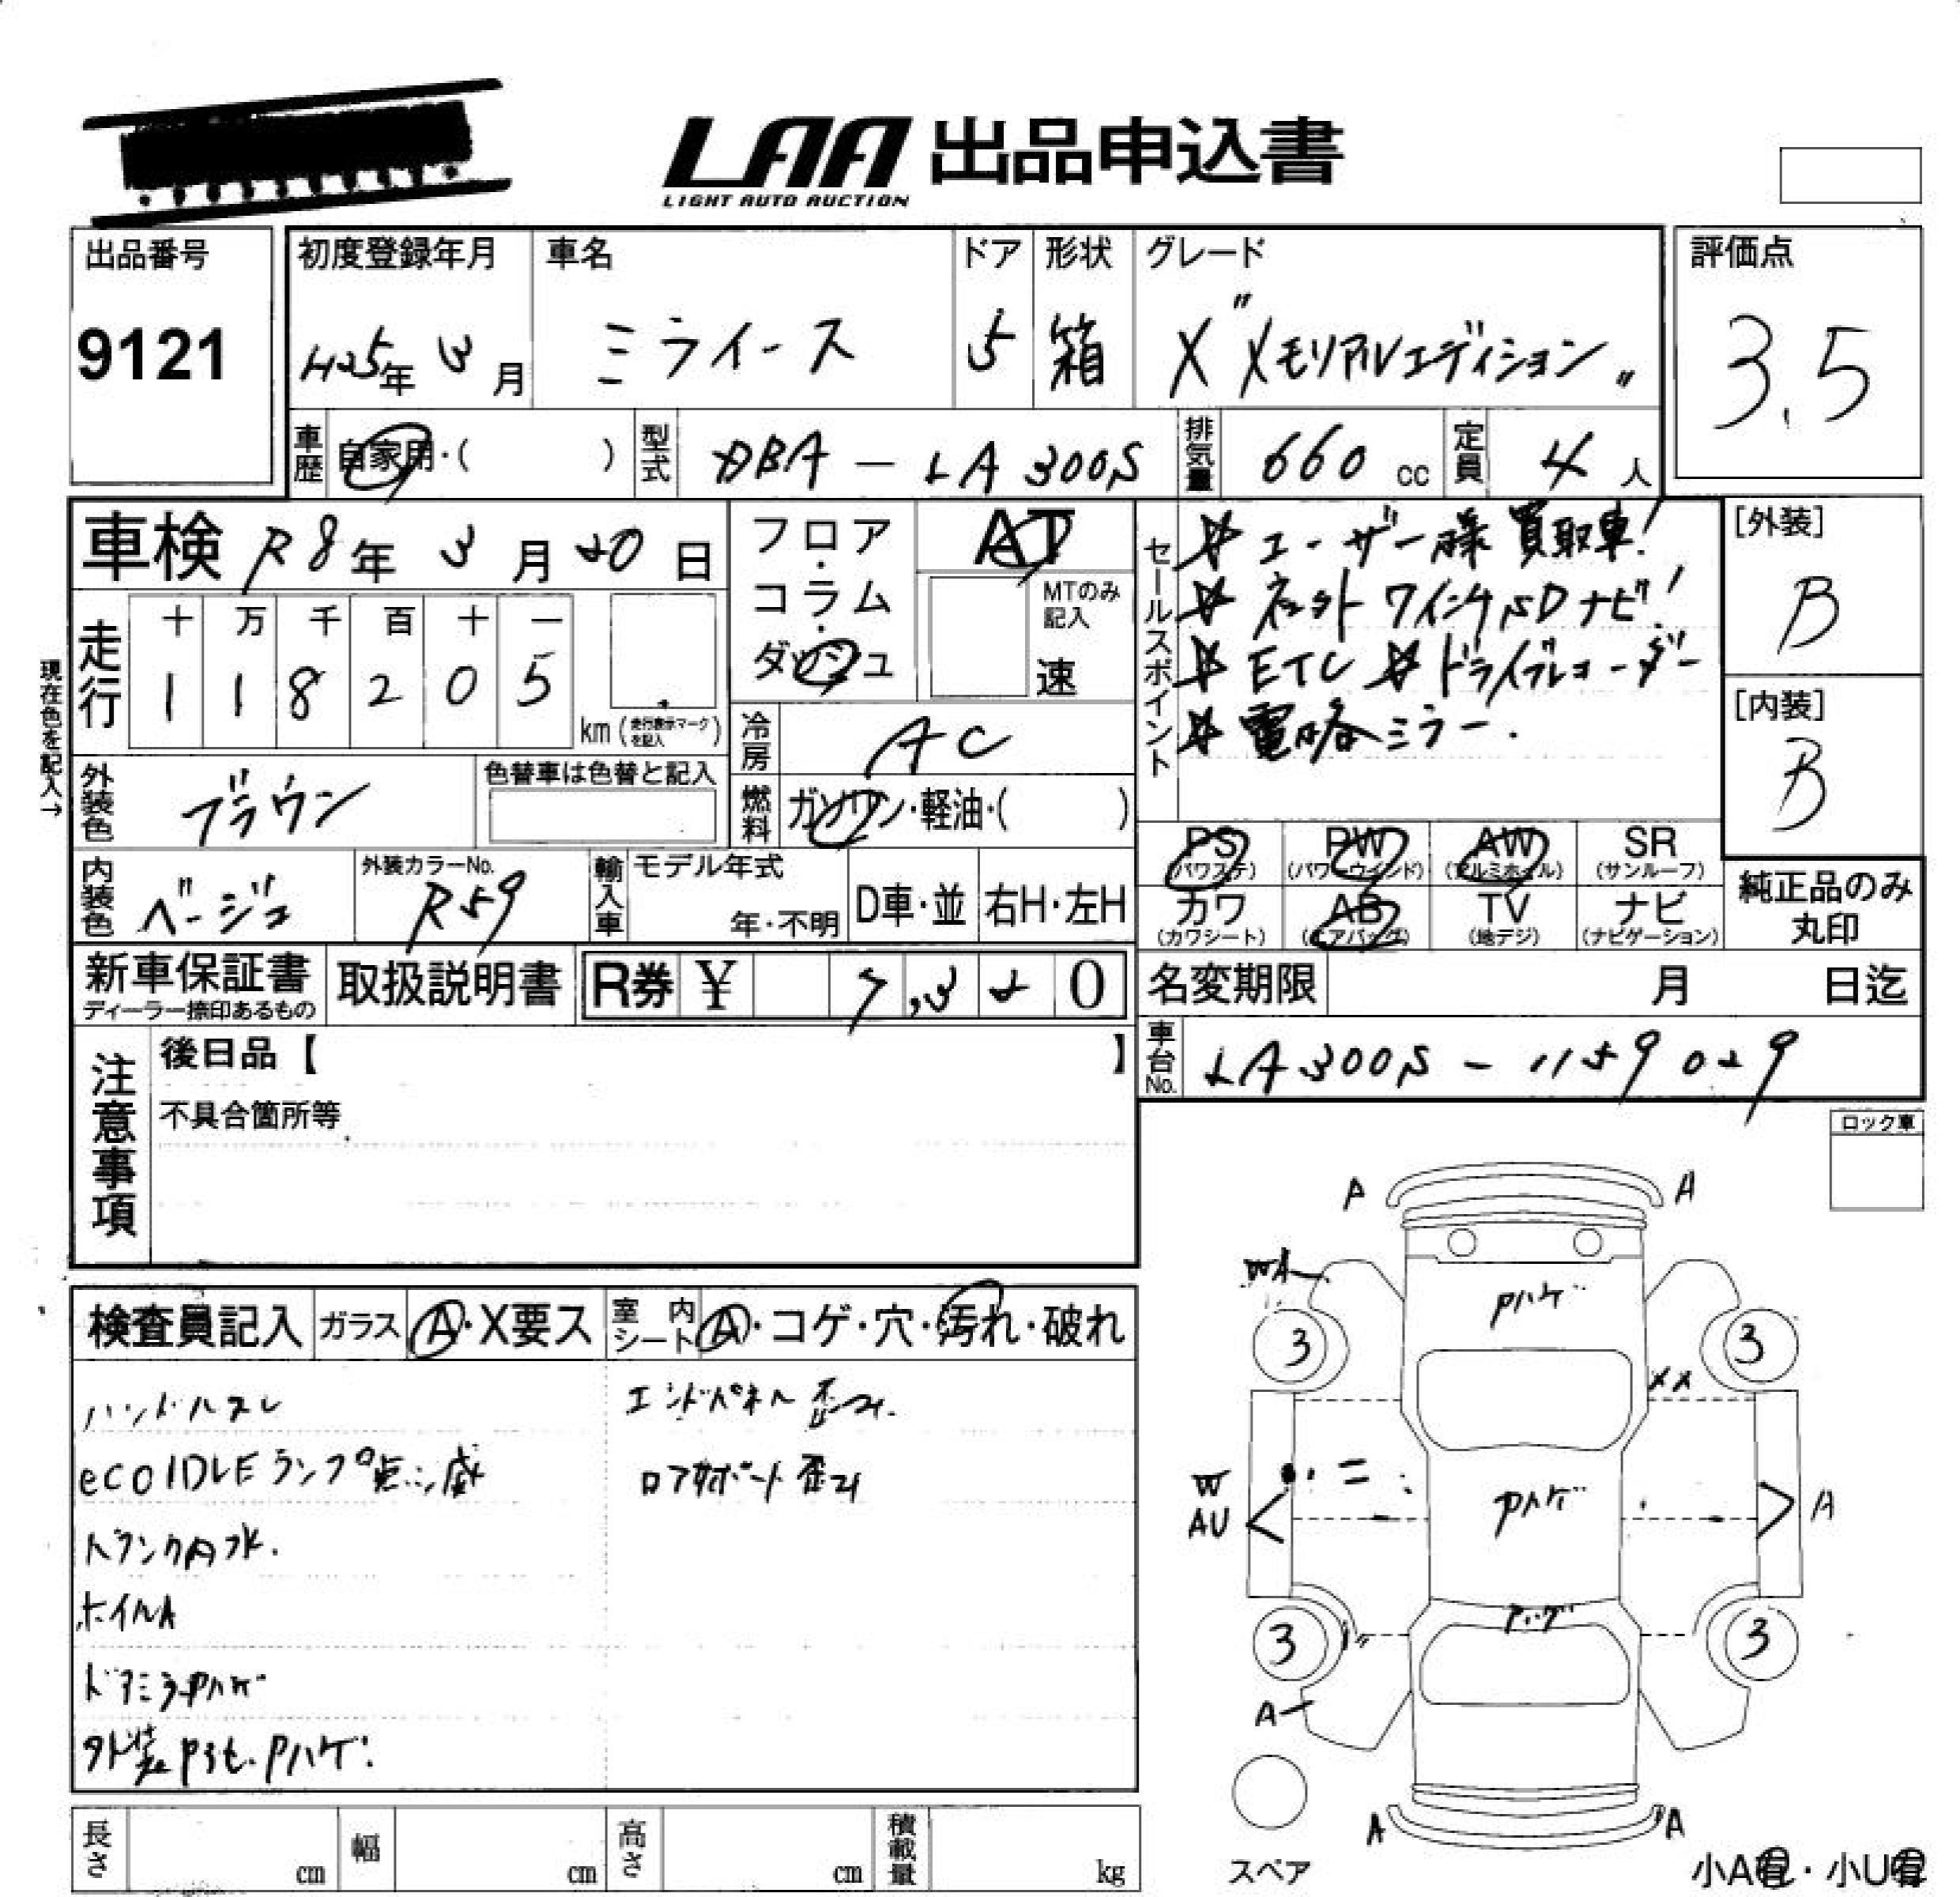 LAA 出品申込書
LIGHT AUTO AUCTION
出品番号
9121
初度登録年月
H25年 3月
車名
ミライース
ドア
5
形状
箱
グレード
X "メモリアルエディション"
評価点
3.5
車歴 自家用・( )
型式 DBA-LA300S
排気量 660 cc
定員 4 人
車検 R8年 3月 20日
フロア・コラム・ダッシュ
AT
MTのみ記入
速
走行
十 万 千 百 十 一
1 1 8 2 0 5
km (走行表示マークを記入)
現在色を記入→
外装色 ブラウン
色替車は色替と記入
冷房 AC
燃料 ガソリン・軽油・( )
セールスポイント
☆ユーザー様買取車!
☆ネットワインナSDナビ!
☆ETC ☆ドライブレコーダー
☆電格ミラー.
[外装]
B
[内装]
B
内装色 ベージュ
外装カラーNo.
R59
輸入車
モデル年式
年・不明
D車・並
右H・左H
PS (パワステ)
PW (パワーウインド)
AW (アルミホイル)
SR (サンルーフ)
カワ (カワシート)
AB (エアバッグ)
TV (地デジ)
ナビ (ナビゲーション)
純正品のみ丸印
新車保証書
ディーラー捺印あるもの
取扱説明書
R券 ¥ 7,320
名変期限 月 日迄
車台No. LA300S-1159029
注意事項
後日品【 】
不具合箇所等
ロック車
検査員記入
ガラス A・X要ス
室内シート A・コゲ・穴・汚れ・破れ
ハンドルスレ
eco IDLEランプ点滅
トランク内水.
ホイルA
ドアミラーPハゲ
外装Pヤケ.Pハゲ.
エンドパネル歪み.
ロアサポート歪み
A A
WA
Pハゲ
3 3
XX
W
AU
Pハゲ
A
Pハゲ
3 3
A
A A
スペア
小A有・小U有
長さ cm
幅 cm
高さ cm
積載量 kg